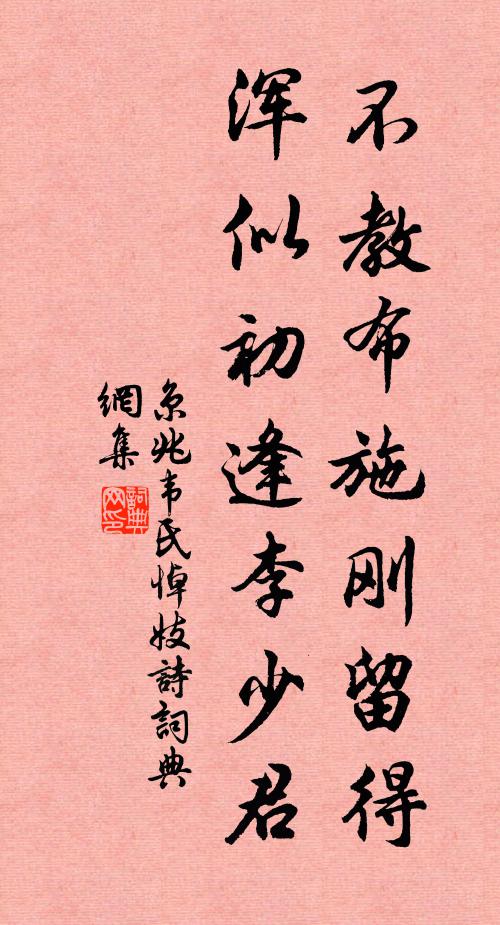 不教布施刚留得
浑似初逢李少君
京兆韦氏悼妓詩詞典
網集
詞典
网印